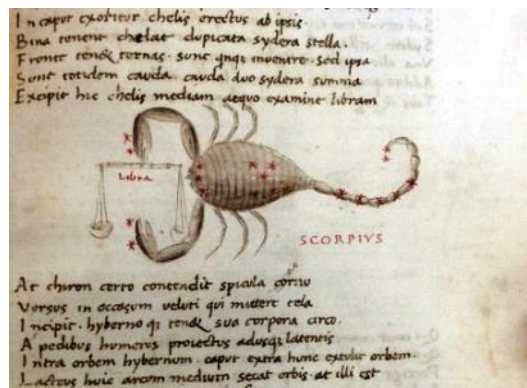 In caput exoritur chelis erectus ab ipsis.
Bina tenent chelas duplicata sydera stella.
Fronte tenet ternas. sunt qnqi inventre. sed ipsa
Sunt totidem cauda cauda duo sydera summa
Excipit hic chelis mediam aequo examine libram
Libra
SCORPIVS
At chiron certo contendit spicula
Versus in occasum veluti qui mittere tela
Incipit. hyberno qi tenet sua corpora circo.
A pedibus humeros proiectus adusqi latentis
Intra orbem hybernum. caput extra hunc extulit orbem.
Lacteus huic arcum medium secat orbis. at illi est